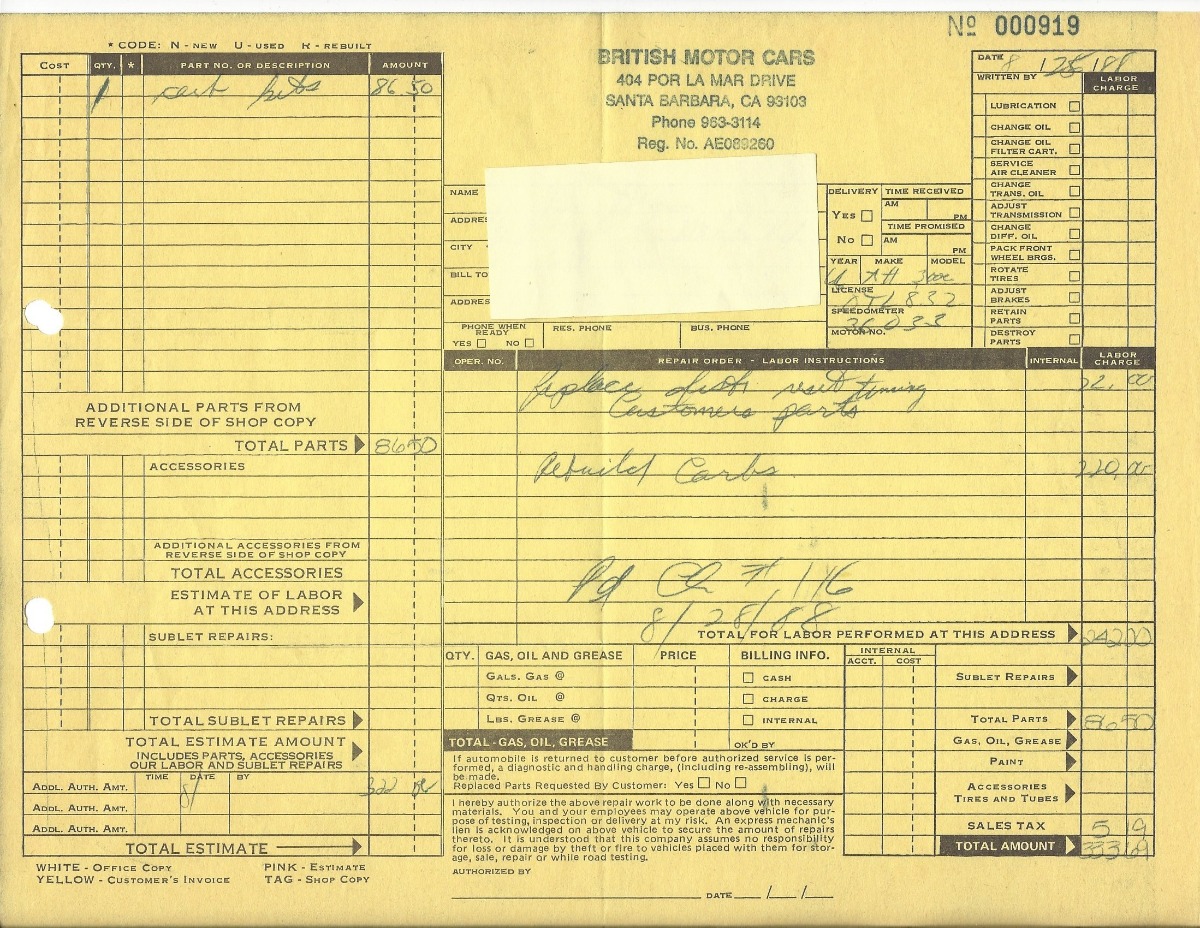 Nº 000919
* CODE: N - NEW U - USED R - REBUILT
COST QTY. * PART NO. OR DESCRIPTION AMOUNT
1 carb kits 86 50
ADDITIONAL PARTS FROM
REVERSE SIDE OF SHOP COPY
TOTAL PARTS 86 50
ACCESSORIES
ADDITIONAL ACCESSORIES FROM
REVERSE SIDE OF SHOP COPY
TOTAL ACCESSORIES
ESTIMATE OF LABOR
AT THIS ADDRESS
SUBLET REPAIRS:
TOTAL SUBLET REPAIRS
TOTAL ESTIMATE AMOUNT
INCLUDES PARTS, ACCESSORIES
OUR LABOR AND SUBLET REPAIRS
TIME DATE BY
ADDL. AUTH. AMT. 8/ 322 00
ADDL. AUTH. AMT.
ADDL. AUTH. AMT.
TOTAL ESTIMATE
WHITE - OFFICE COPY PINK - ESTIMATE
YELLOW - CUSTOMER'S INVOICE TAG - SHOP COPY
BRITISH MOTOR CARS
404 POR LA MAR DRIVE
SANTA BARBARA, CA 93103
Phone 963-3114
Reg. No. AE089260
NAME
ADDRE
CITY
BILL TO
ADDRE
PHONE WHEN READY
YES NO
RES. PHONE
BUS. PHONE
DELIVERY
YES
NO
TIME RECEIVED
AM PM
TIME PROMISED
AM PM
YEAR MAKE MODEL
AH 3000
LICENSE
832
SPEEDOMETER
36033
MOTOR NO.
DATE 8
WRITTEN BY
LABOR CHARGE
LUBRICATION
CHANGE OIL
CHANGE OIL FILTER CART.
SERVICE AIR CLEANER
CHANGE TRANS. OIL
ADJUST TRANSMISSION
CHANGE DIFF. OIL
PACK FRONT WHEEL BRGS.
ROTATE TIRES
ADJUST BRAKES
RETAIN PARTS
DESTROY PARTS
OPER. NO. REPAIR ORDER - LABOR INSTRUCTIONS INTERNAL LABOR CHARGE
Replace dist reset timing 22.00
Customers parts
Rebuild Carbs 220.00
Pd Ch # 116
8/28/88
TOTAL FOR LABOR PERFORMED AT THIS ADDRESS 242 00
QTY. GAS, OIL AND GREASE PRICE
GALS. GAS @
QTS. OIL @
LBS. GREASE @
TOTAL - GAS, OIL, GREASE
BILLING INFO.
CASH
CHARGE
INTERNAL
OK'D BY
INTERNAL
ACCT. COST
SUBLET REPAIRS
TOTAL PARTS 86 50
GAS, OIL, GREASE
PAINT
ACCESSORIES
TIRES AND TUBES
SALES TAX 5 19
TOTAL AMOUNT 333 69
If automobile is returned to customer before authorized service is per-
formed, a diagnostic and handling charge, (including re-assembling), will
be made.
Replaced Parts Requested By Customer: Yes No
I hereby authorize the above repair work to be done along with necessary
materials. You and your employees may operate above vehicle for pur-
pose of testing, inspection or delivery at my risk. An express mechanic's
lien is acknowledged on above vehicle to secure the amount of repairs
thereto. It is understood that this company assumes no responsibility
for loss or damage by theft or fire to vehicles placed with them for stor-
age, sale, repair or while road testing.
AUTHORIZED BY
DATE / /